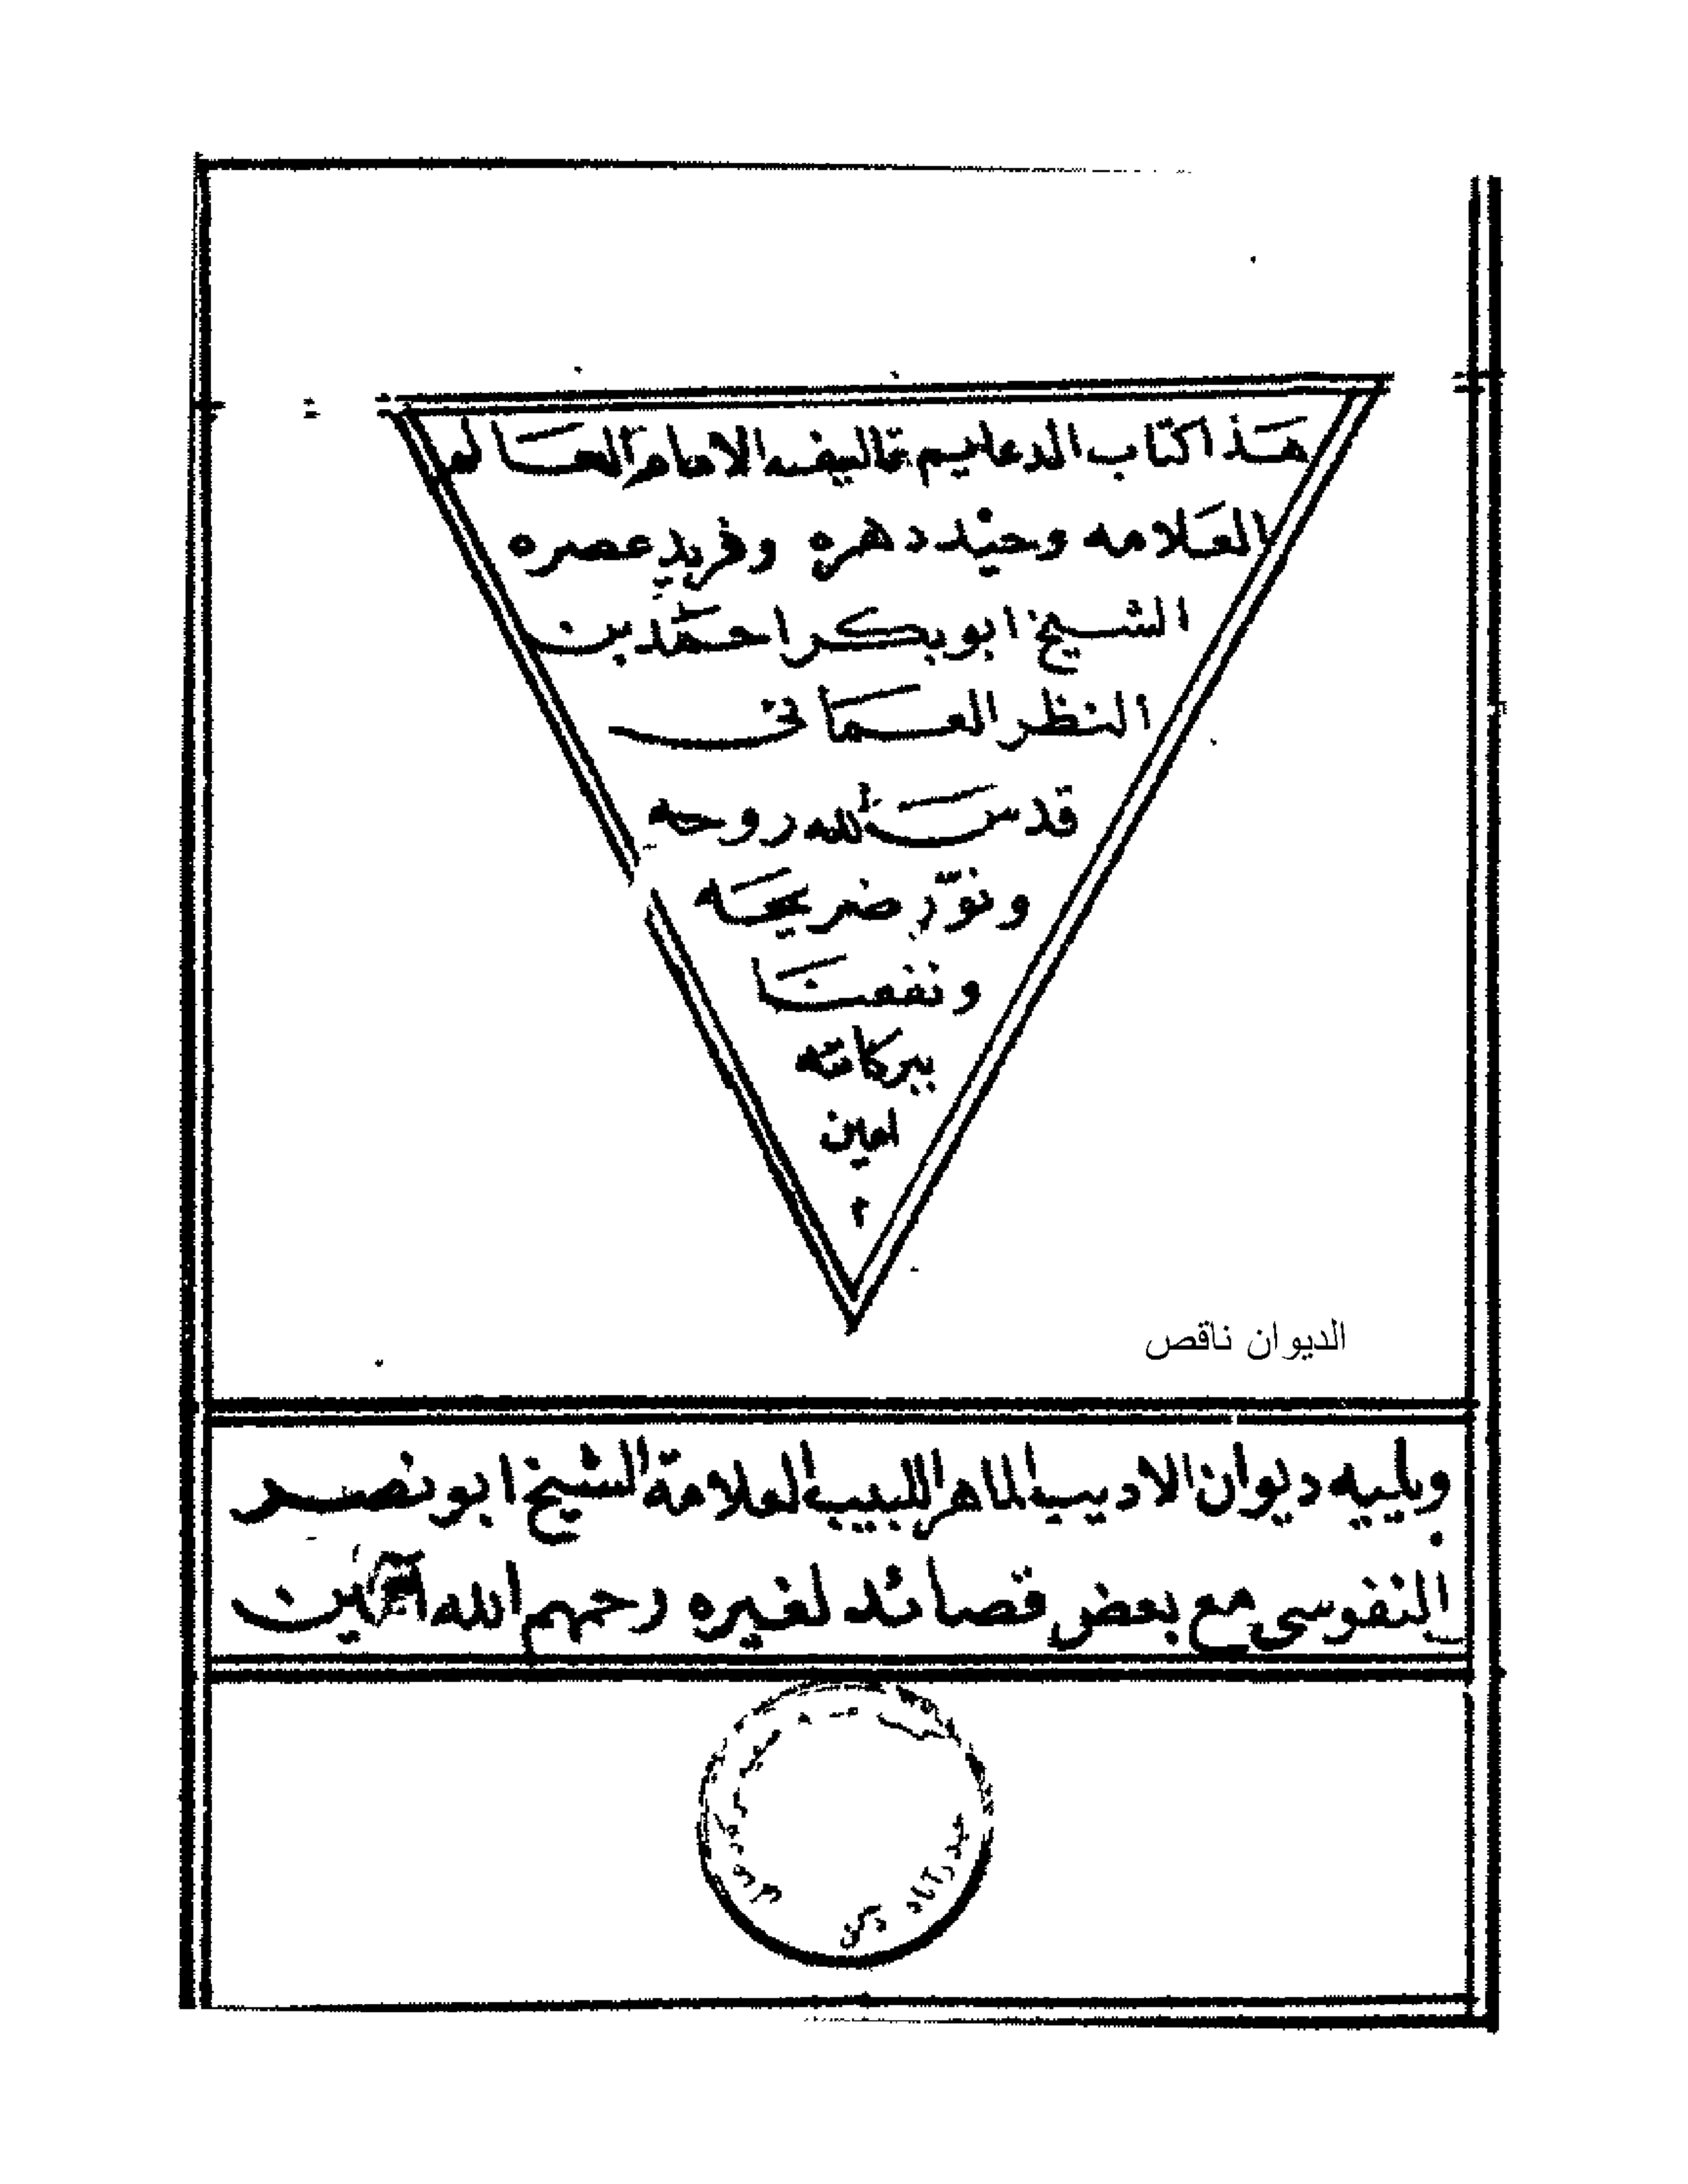 هذا كتاب الدعايم تاليفه الامام العالم
العلامه وحيد دهره وفريد عصره
الشيخ ابو بكر احمد بن
النظر العماني
قدس الله روحه
ونوّر ضريحه
ونفعنا
ببركاته
امين
م
الديوان ناقص
ويليه ديوان الاديب الماهر اللبيب العلامة الشيخ ابو نصر
النفوسي مع بعض قصائد لغيره رحمهم الله آمين
حيدرآباد دكن